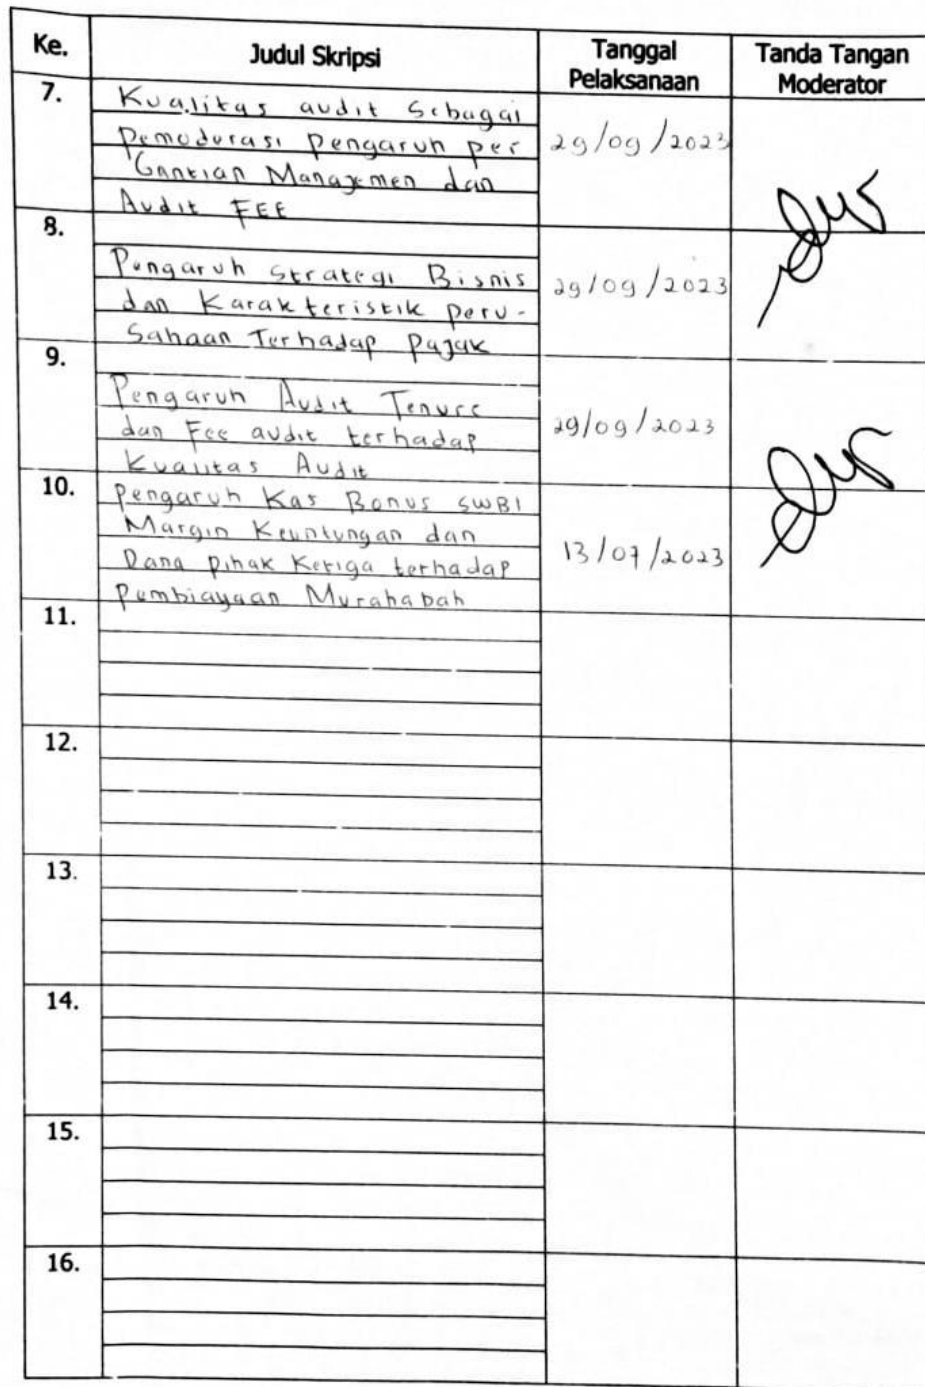 Ke. Judul Skripsi Tanggal Pelaksanaan Tanda Tangan Moderator
7. Kualitas audit Sebagai
Pemoderasi Pengaruh per
Gantian Manajemen dan
Audit FEE
29/09/2023
8.
Pengaruh Strategi Bisnis
dan Karakteristik peru-
Sahaan Terhadap Pajak
29/09/2023
9.
Pengaruh Audit Tenure
dan Fee audit terhadap
Kualitas Audit
29/09/2023
10. Pengaruh Kas Bonus SWBI
Margin Keuntungan dan
Dana pihak Ketiga terhadap
Pembiayaan Murahabah
13/07/2023
11.
12.
13.
14.
15.
16.